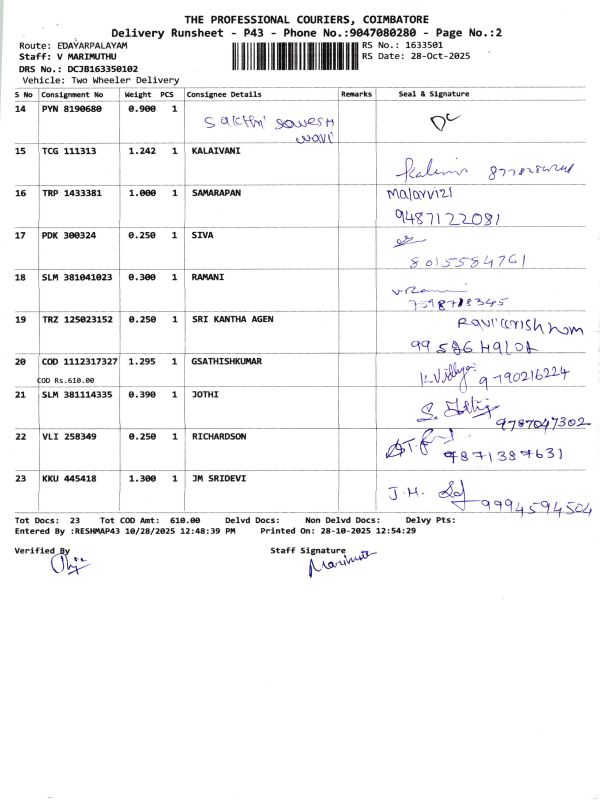 THE PROFESSIONAL COURIERS, COIMBATORE
Delivery Runsheet - P43 - Phone No.:9047080280 - Page No.:2
Route: EDAYARPALAYAM RS No.: 1633501
Staff: V MARIMUTHU RS Date: 28-Oct-2025
DRS No.: DCJB163350102
Vehicle: Two Wheeler Delivery
S No Consignment No Weight PCS Consignee Details Remarks Seal & Signature
14 PYN 8190680 0.900 1 DC
15 TCG 111313 1.242 1 KALAIVANI
16 TRP 1433381 1.000 1 SAMARAPAN Malarvizi
9487122081
17 PDK 300324 0.250 1 SIVA
8015584761
18 SLM 381041023 0.300 1 RAMANI V. Ramani
7598718345
19 TRZ 125023152 0.250 1 SRI KANTHA AGEN
20 COD 1112317327 1.295 1 GSATHISHKUMAR K. Vidhya 9790216224
COD Rs.610.00
21 SLM 381114335 0.390 1 JOTHI S. Jothi
9787047302
22 VLI 258349 0.250 1 RICHARDSON
9871387631
23 KKU 445418 1.300 1 JM SRIDEVI J.M.
9994594504
Tot Docs: 23 Tot COD Amt: 610.00 Delvd Docs: Non Delvd Docs: Delvy Pts:
Entered By :RESHMAP43 10/28/2025 12:48:39 PM Printed On: 28-10-2025 12:54:29
Verified By Staff Signature
Marimuthu